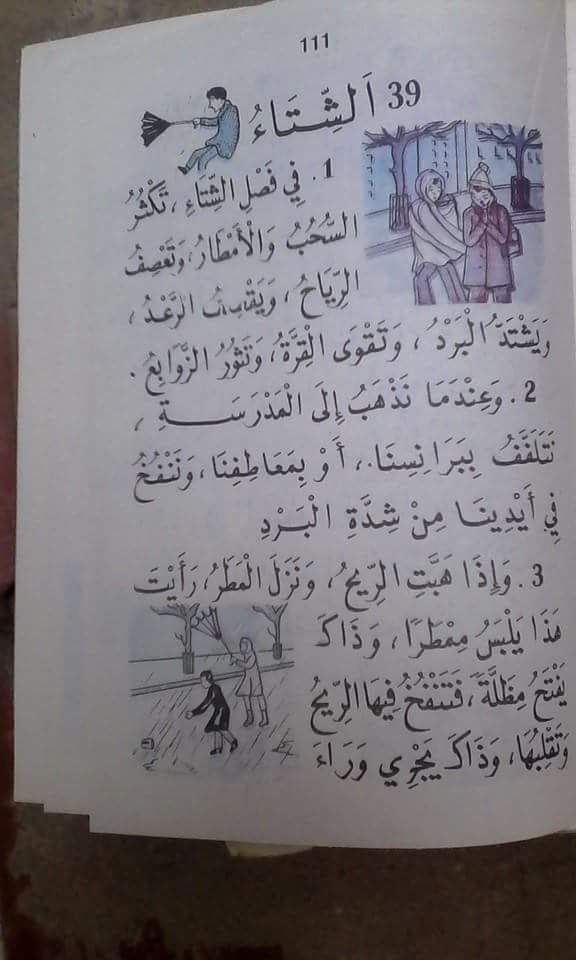 111
39 اَلشِّتَاءُ
1. فِي فَصْلِ الشِّتَاءِ، تَكْثُرُ
السُّحُبُ وَالْأَمْطَارُ، وَتَعْصِفُ
الرِّيَاحُ، وَيَقْصِفُ الرَّعْدُ،
وَيَشْتَدُّ الْبَرْدُ، وَتَقْوَى الْقِرَّةُ، وَتَثُورُ الزَّوَابِعُ.
2. وَعِنْدَمَا نَذْهَبُ إِلَى الْمَدْرَسَةِ،
نَتَلَفَّفُ بِبَرَانِسِنَا.، أَوْ بِمَعَاطِفِنَا، وَنَنْفُخُ
فِي أَيْدِينَا مِنْ شِدَّةِ الْبَرْدِ
3. وَإِذَا هَبَّتِ الرِّيحُ، وَنَزَلَ الْمَطَرُ، رَأَيْتَ
هَذَا يَلْبَسُ مِمْطَرًا، وَذَاكَ
يَفْتَحُ مِظَلَّةً، فَتَنْفُخُ فِيهَا الرِّيحُ
وَتَقْلِبُهَا، وَذَاكَ يَجْرِي وَرَاءَ